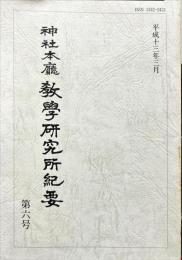 平成十三年三月
神社本廳 教學研究所紀要
第六号